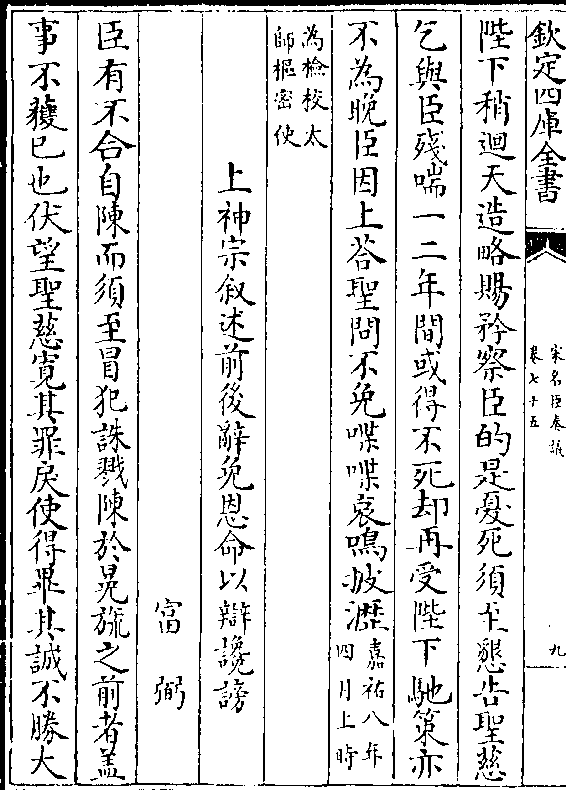 欽定四庫全書
宋名臣奏議
卷七十五
九
陛下稍迴天造略賜矜察臣的是憂死須至懇告聖慈
乞與臣殘喘一二年間或得不死却再受陛下馳策亦
不為晚臣因上荅聖問不免喋喋哀鳴披瀝嘉祐八年
四月上時
為檢校太
師樞密使
上神宗叙述前後辭免恩命以辯讒謗
富弼
臣有不合自陳而須至冒犯誅戮陳於晃旒之前者盖
事不獲已也伏望聖慈寛其罪戾使得畢其誠不勝大